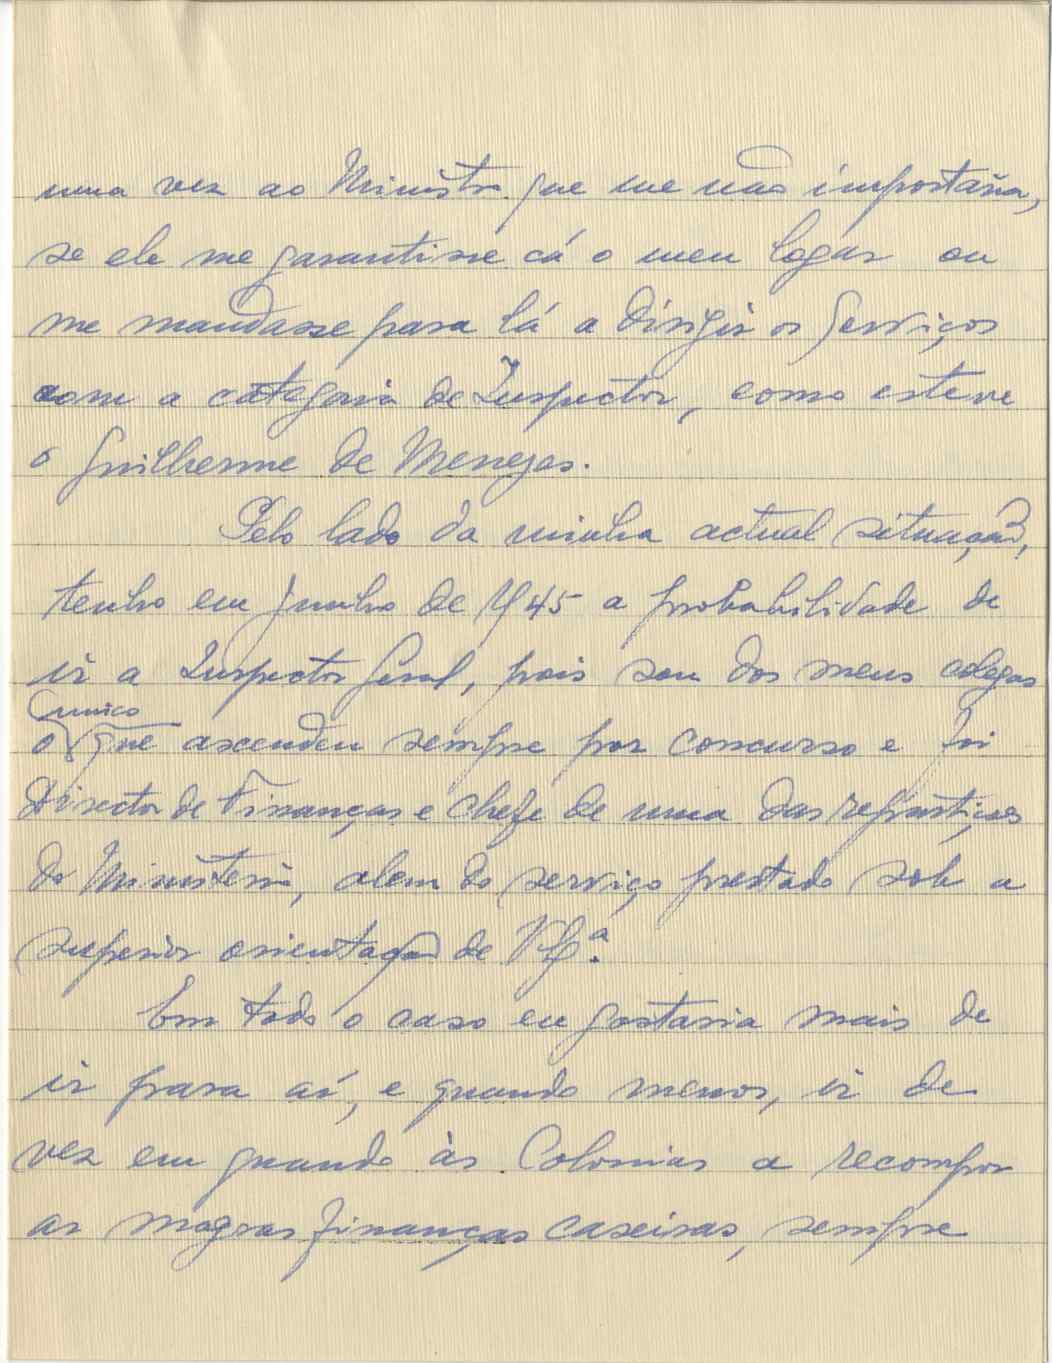 uma vez ao Ministro que me não importaria,
se ele me garantisse cá o meu logar ou
me mandasse para lá a dirigir os serviços
com a categoria de Inspector, como esteve
o Guilherme de Menezes.
Pelo lado da minha actual situação,
tenho em Junho de 945 a probabilidade de
ir a Inspector Geral, pois sou dos meus colegas
o unico que ascendeu sempre por concurso e foi
Director de Finanças e Chefe de uma das repartições
do Ministerio, alem do serviço prestado sob a
superior orientação de V. Ex.ª
Em todo o caso eu gostaria mais de
ir para aí, e quando menos, ir de
vez em quando às Colonias a recompor
as magras finanças caseiras, sempre